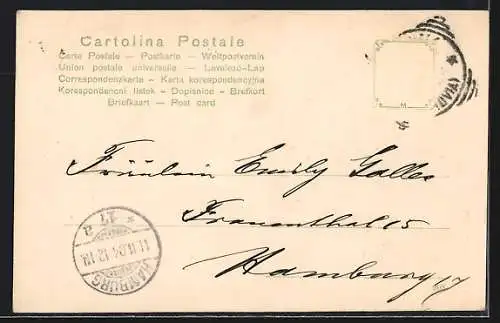 Cartolina Postale
Carte Postale – Postkarte – Weltpostverein
Union postale universelle – Levelező-Lap
Correspondenzkarte – Karta korespondencyjna
Korespondenční lístek – Dopisnice – Brefkort
Briefkaart – Post card
M
Fräulein Emily Galles
Frauenthal 15
Hamburg 17
* 17 a
11.11.04.12-1N
HAMBURG